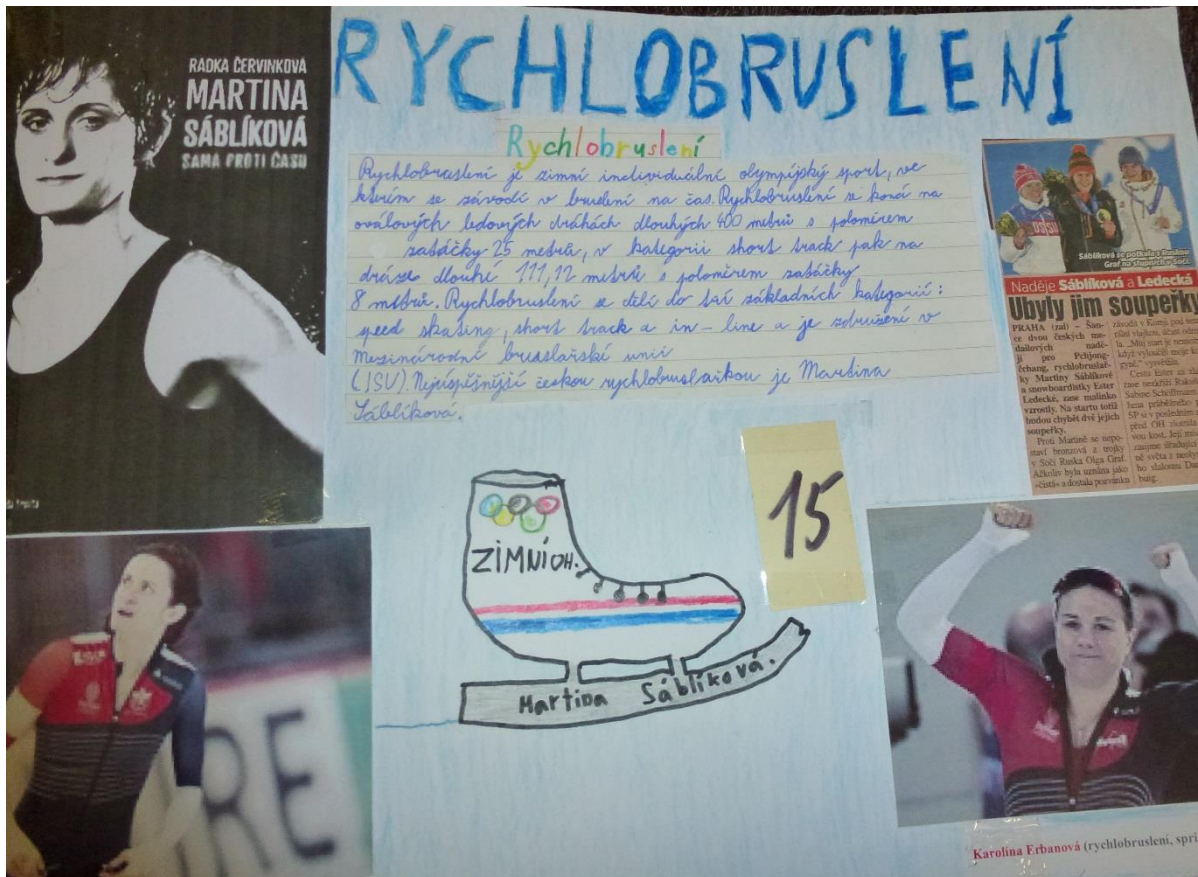 RADKA ČERVINKOVÁ
MARTINA
SÁBLÍKOVÁ
SAMA PROTI ČASU
RYCHLOBRUSLENÍ
Rychlobruslení
Rychlobruslení je zimní individuální olympijský sport, ve
kterím se závodí v bruslení na čas. Rychlobruslení se koná na
oválových ledových dráhách dlouhých 400 metrů s polomírem
zatáčky 25 metrů, v kategorii short track pak na
dráze dlouhí 111,12 metrů s polomírem zatáčky
8 metrů. Rychlobruslení se dělí do tří základních kategorií:
speed skating, short track a in-line a je združení v
Mezinárodní bruslařskí unii
(ISU). Nejúspěšnější českou rychlobruslařkou je Martina
Sáblíková.
Sáblíková se potkala s Ruskou
Graf na stupních v Soči.
Naděje Sáblíková a Ledecká
Ubyly jim soupeřky
PRAHA (zal) – Šan-
ce dvou českých me-
dailových nadě-
jí pro Pchjong-
čchang, rychlobruslař-
ky Martiny Sáblíkové
a snowboardistky Ester
Ledecké, zase malinko
vzrostly. Na startu totiž
budou chybět dvě jejich
soupeřky.
Proti Martině se nepo-
staví bronzová z trojky
v Soči Ruska Olga Graf.
Ačkoliv byla uznána jako
»čistá« a dostala pozvánku
15
ZIMNÍ OH.
Martina Sáblíková.
RE
Karolína Erbanová (rychlobruslení, spri